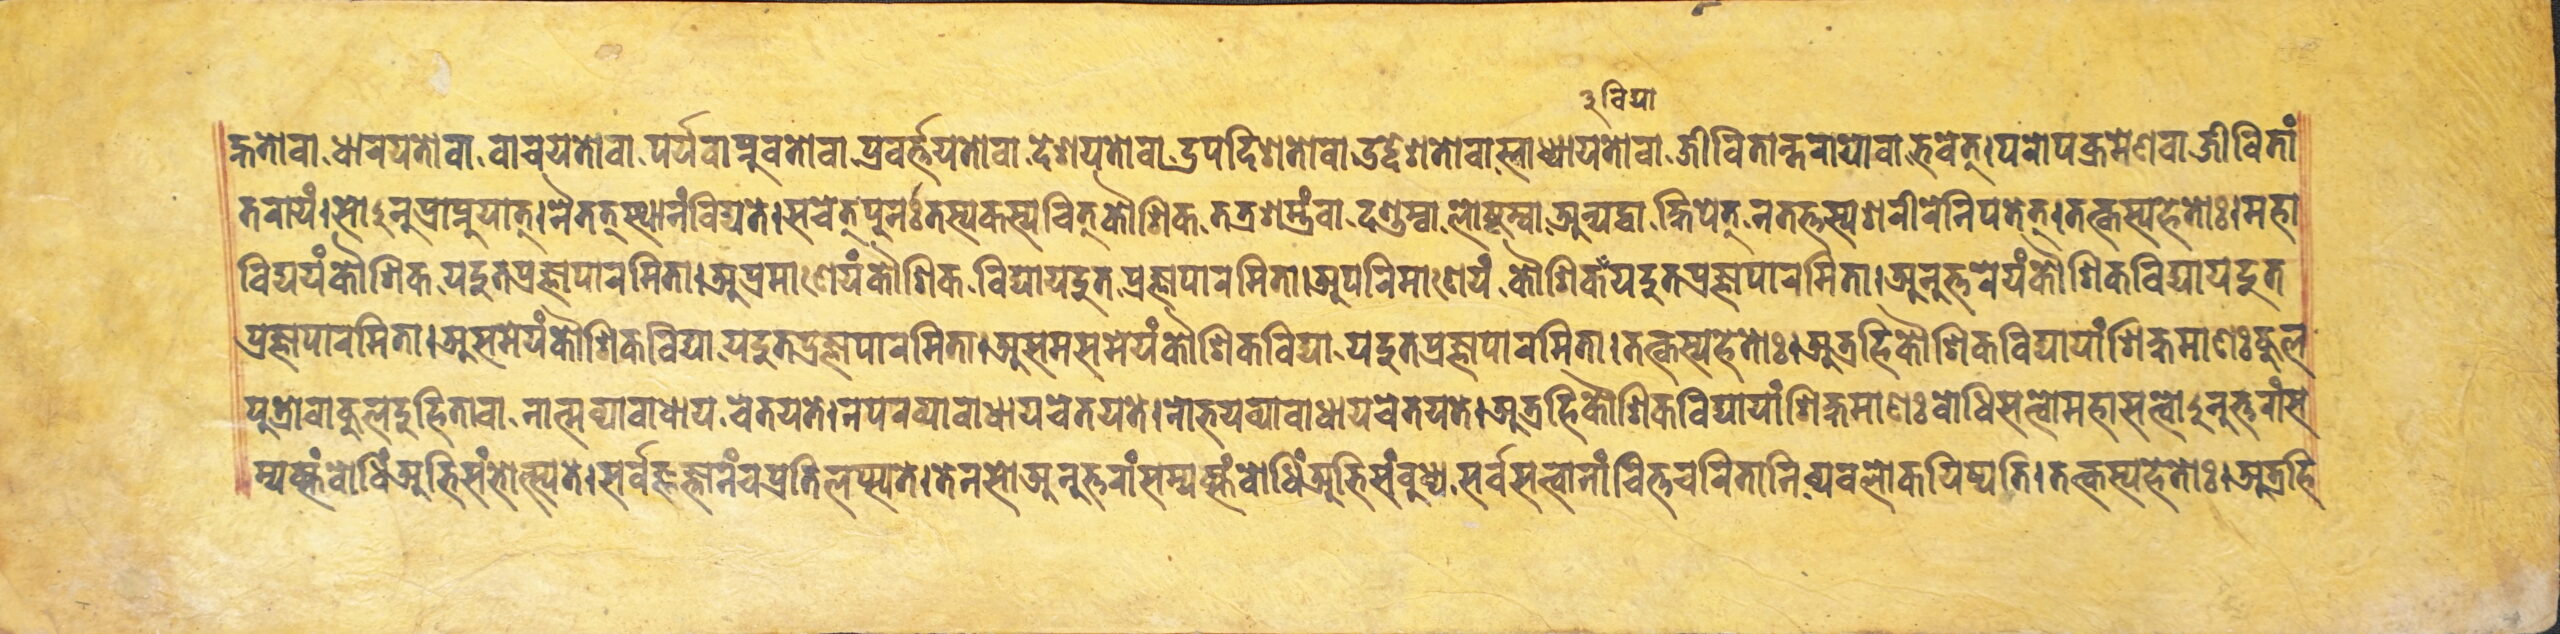 ३ विद्या
ह्नतोवा धारयतोवा वाचयतोवा पर्यवाप्नुवतोवा प्रवर्त्तयतोवा देशयतोवा उपदिशतोवा उद्देशतोवा स्वाध्यायतोवा जीवितान्तरायोवा भवेत्। परोपक्रमेणवा जीवितां
तरायं। सोऽनुप्राप्नुयात्। नैतत्स्थानंविद्यते। सचेत्पुनर्ः तस्यकस्यचित्कौशिक तत्रशस्त्रंवा दण्डम्वा लोष्टम्वा अन्यद्वा क्षिपेत् नतत्तस्यशरीरेनिपतेत्। तत्कस्यहेतोः। महा
विद्ययंकौशिक यदुतप्रज्ञापारमिता। अप्रमाणेयंकौशिक विद्यायदुत प्रज्ञापारमिता। अपरिमाणेयं कौशिकयदुतप्रज्ञापारमिता। अनुत्तरेयंकौशिकविद्यायदुत
प्रज्ञापारमिता। असमेयंकौशिकविद्या यदुतप्रज्ञापारमिता। असमसमेयंकौशिकविद्या यदुतप्रज्ञापारमिता। तत्कस्यहेतोः। अत्रहिकौशिकविद्यायांशिक्षमाणःकुल
पुत्रोवाकुलदुहितावा नात्मव्यावाधाय चेतयते। नपरव्यावाधायचेतयते। नोभयव्यावाधायचेतयते। अत्रहिकौशिकविद्यायांशिक्षमाणःवोधिसत्वोमहासत्वोऽनुत्तरांस
म्यक्संवोधिंअभिसंभोत्स्यते। सर्वज्ञज्ञानंचप्रतिलप्स्यते। तेनसोअनुत्तरांसम्यक्संवोधिंअभिसंवुध्य सर्वसत्वानांचित्तचरितानि व्यवलोकयिष्यति। तत्कस्यहेतोः। अत्रहि